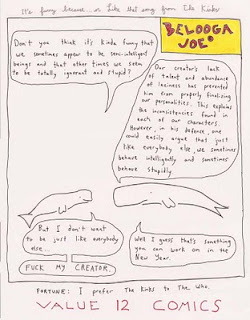 It's funny because... or Like that song from the Kinks
BELOOGA
JOE®
Don't you think it's kinda funny that
we sometimes appear to be semi-intelligent
beings and that other times we seem
to be totally ignorant and stupid?
Our creator's lack
of talent and abundance
of laziness has prevented
him from properly finalizing
our personalities. This explains
the inconsistencies found in
each of our characters.
However, in his defence, one
could easily argue that just
like everybody else, we sometimes
behave intelligently and sometimes
behave stupidly.
But I don't want
to be just like everybody
else.
FUCK MY CREATOR.
Well I guess that's something
you can work on in the
New Year.
FORTUNE: I prefer The Kinks to The Who.
VALUE 12 COMICS